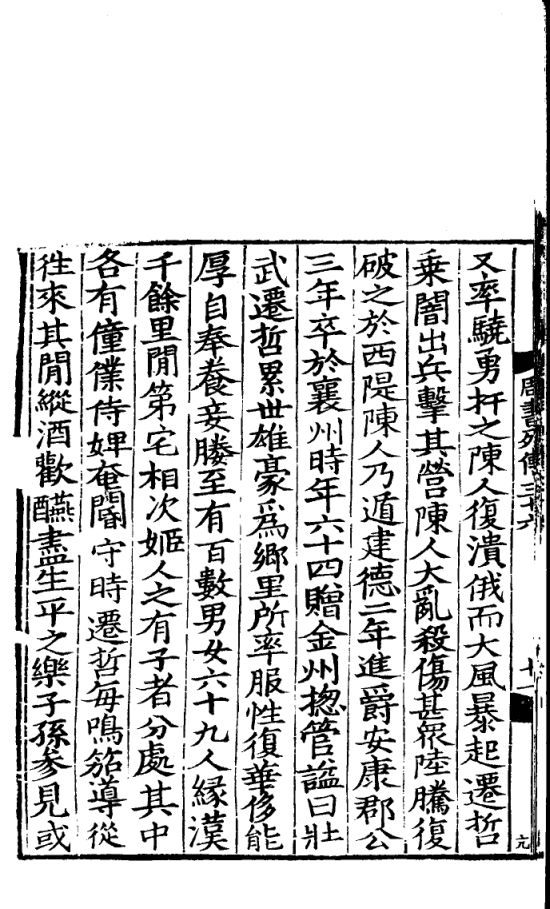 周書列傳三十六
十一
又率驍勇扞之陳人復潰俄而大風暴起遷哲
乗闇出兵擊其營陳人大亂殺傷甚衆陸騰復
破之於西隄陳人乃遁建德二年進爵安康郡公
三年卒於襄州時年六十四贈金州揔管諡曰壯
武遷哲累世雄豪爲鄉里所率服性復華侈能
厚自奉養妾媵至有百數男女六十九人緣漢
千餘里閒第宅相次姬人之有子者分處其中
各有僮僕侍婢奄閽守時遷哲每鳴笳導從
徃來其閒縱酒歡醼盡生平之樂子孫參見或